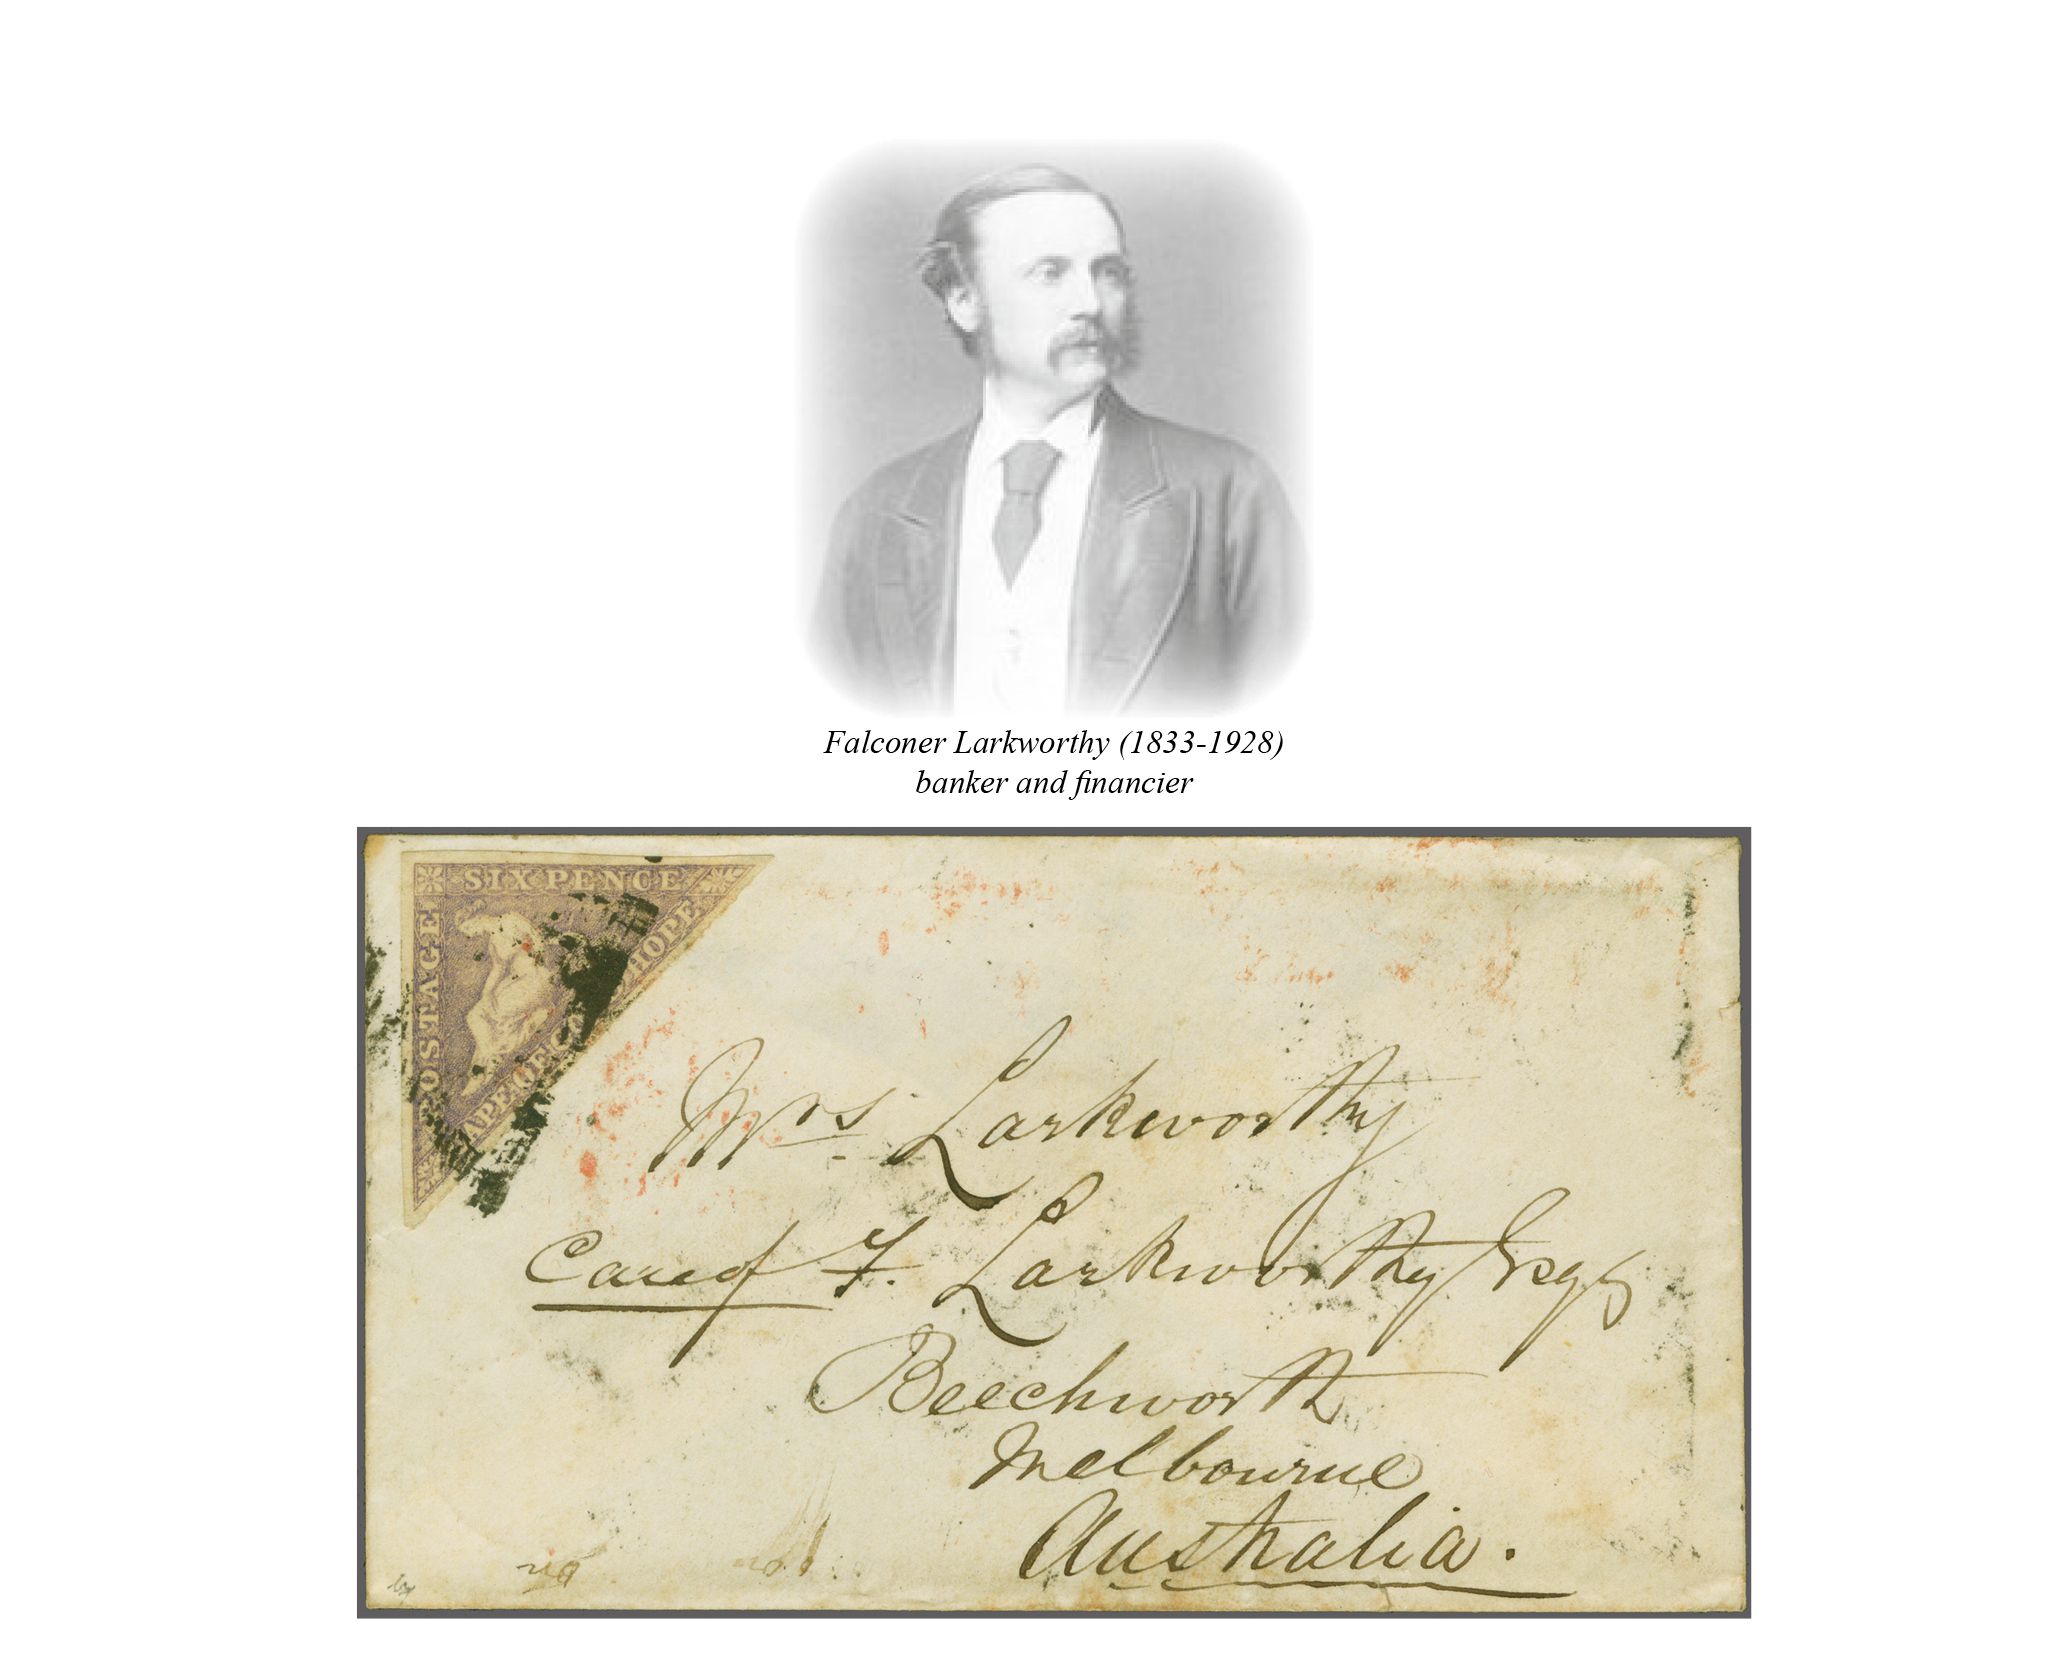 Falconer Larkworthy (1833-1928)
banker and financier
SIX PENCE
POSTAGE
CAPE OF GOOD HOPE
Mrs Larkworthy
Care of F. Larkworthy Esqr
Beechworth
Melbourne
Australia.